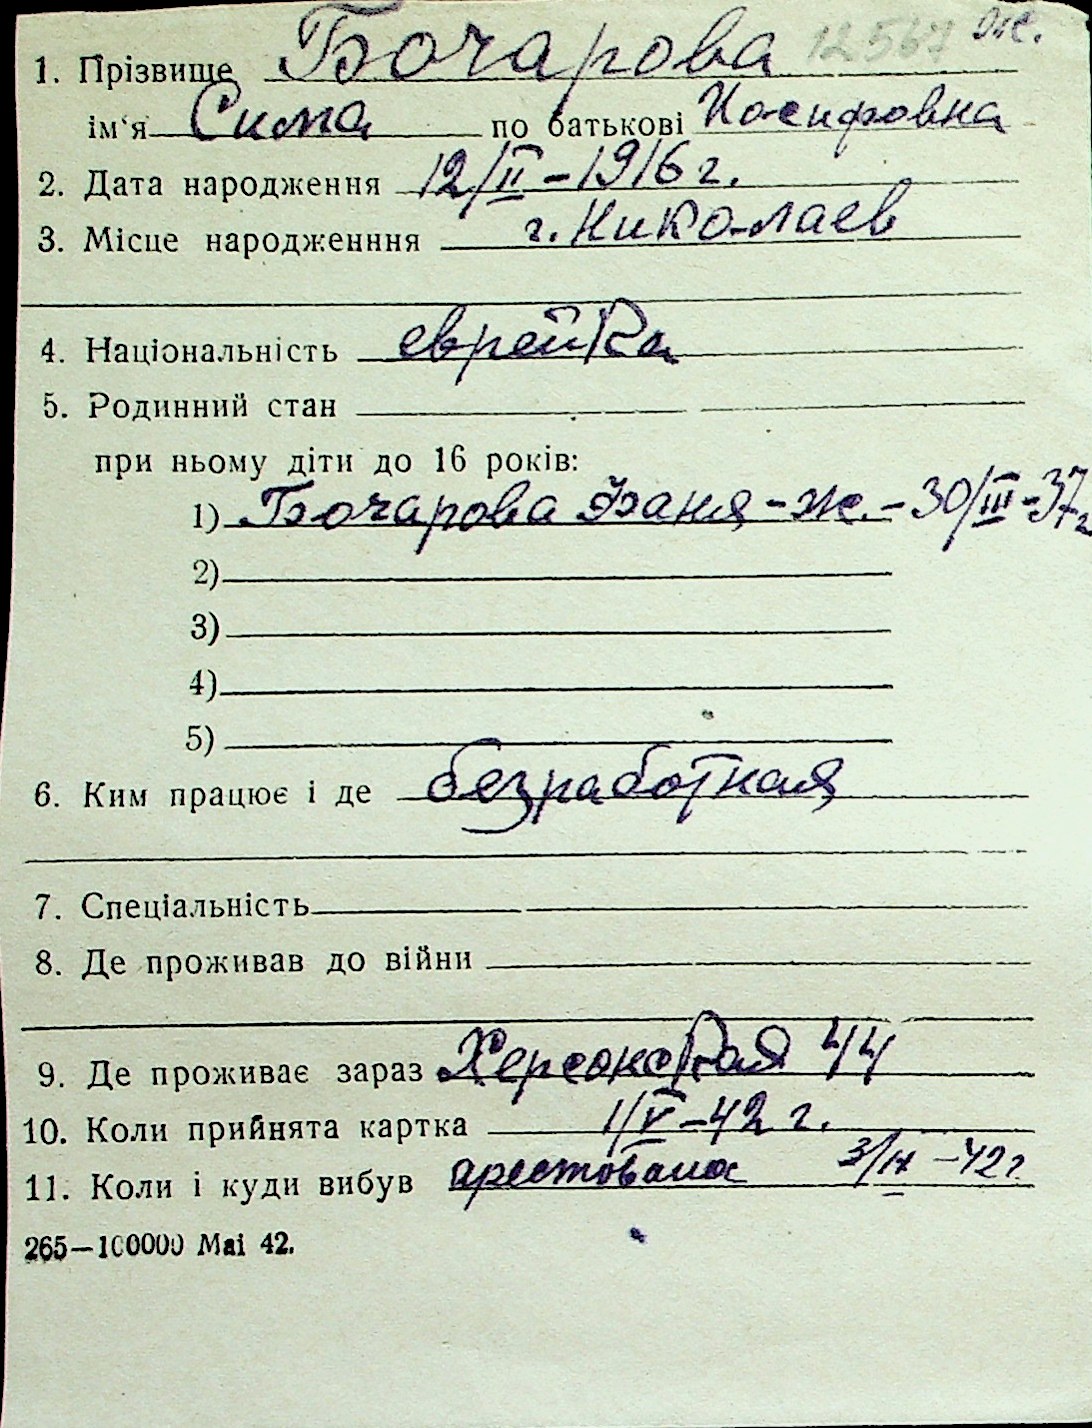 12567 ж.
1. Прізвище Бочарова
ім'я Сима по батькові Иосифовна
2. Дата народження 12/II – 1916 г.
3. Місце народженння г. Николаев
4. Національність еврейка
5. Родинний стан
при ньому діти до 16 років:
1) Бочарова Фаня – ж. – 30/III – 37 г
2)
3)
4)
5)
6. Ким працює і де безработная
7. Спеціальність
8. Де проживав до війни
9. Де проживає зараз Херсонская 44
10. Коли прийнята картка 1/V – 42 г.
11. Коли і куди вибув арестована 3/IX – 42 г
265—100000 Mai 42.